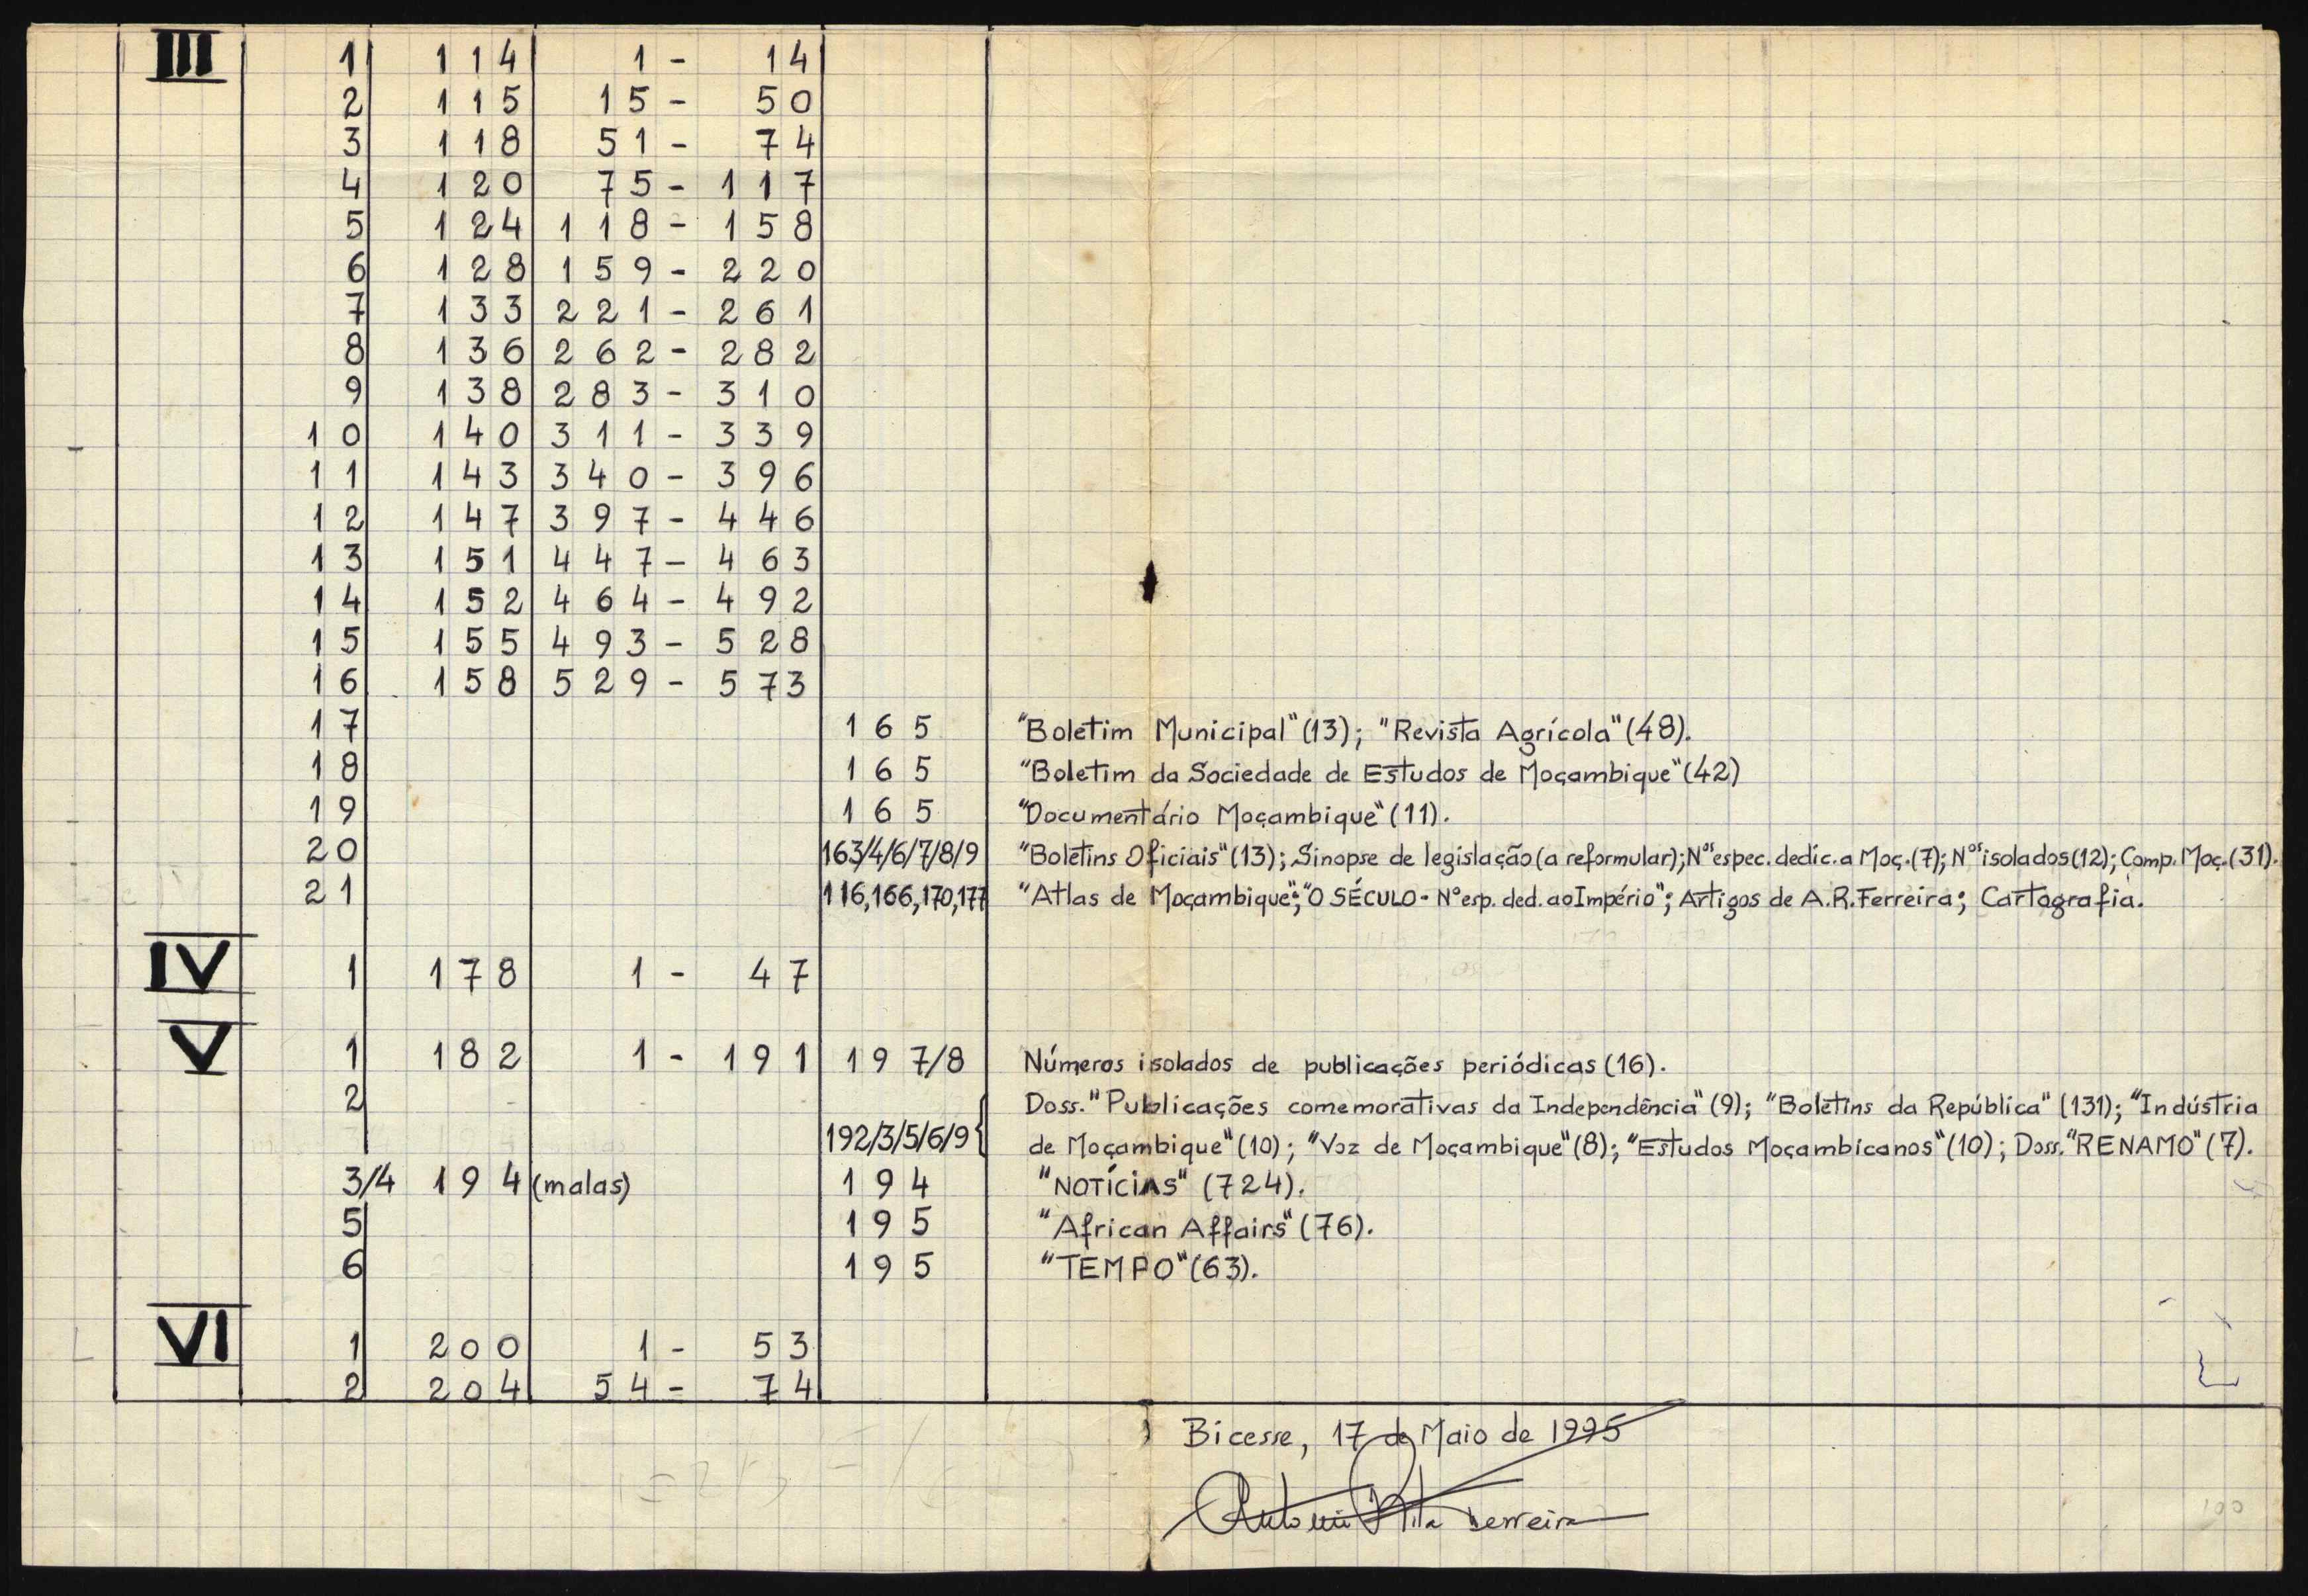 III 1 114 1 - 14
2 115 15 - 50
3 118 51 - 74
4 120 75 - 117
5 124 118 - 158
6 128 159 - 220
7 133 221 - 261
8 136 262 - 282
9 138 283 - 310
10 140 311 - 339
11 143 340 - 396
12 147 397 - 446
13 151 447 - 463
14 152 464 - 492
15 155 493 - 528
16 158 529 - 573
17 165 "Boletim Municipal" (13); "Revista Agrícola" (48).
18 165 "Boletim da Sociedade de Estudos de Moçambique" (42)
19 165 "Documentário Moçambique" (11).
20 163/4/6/7/8/9 "Boletins Oficiais" (13); Sinopse de legislação (a reformular); Nºs espec. dedic. a Moç. (7); Nºs isolados (12); Comp. Moç. (31).
21 116,166,170,177 "Atlas de Moçambique"; "O SÉCULO - Nº esp. ded. ao Império"; Artigos de A.R.Ferreira; Cartografia.
IV 1 178 1 - 47
V 1 182 1 - 191 197/8 Números isolados de publicações periódicas (16).
2 Doss. "Publicações comemorativas da Independência" (9); "Boletins da República" (131); "Indústria
192/3/5/6/9 { de Moçambique" (10); "Voz de Moçambique" (8); "Estudos Moçambicanos" (10); Doss. "RENAMO" (7).
3/4 194 (malas) 194 "NOTÍCIAS" (724).
5 195 "African Affairs" (76).
6 195 "TEMPO" (63).
VI 1 200 1 - 53
2 204 54 - 74
Bicesse, 17 de Maio de 1995
António Rita Ferreira